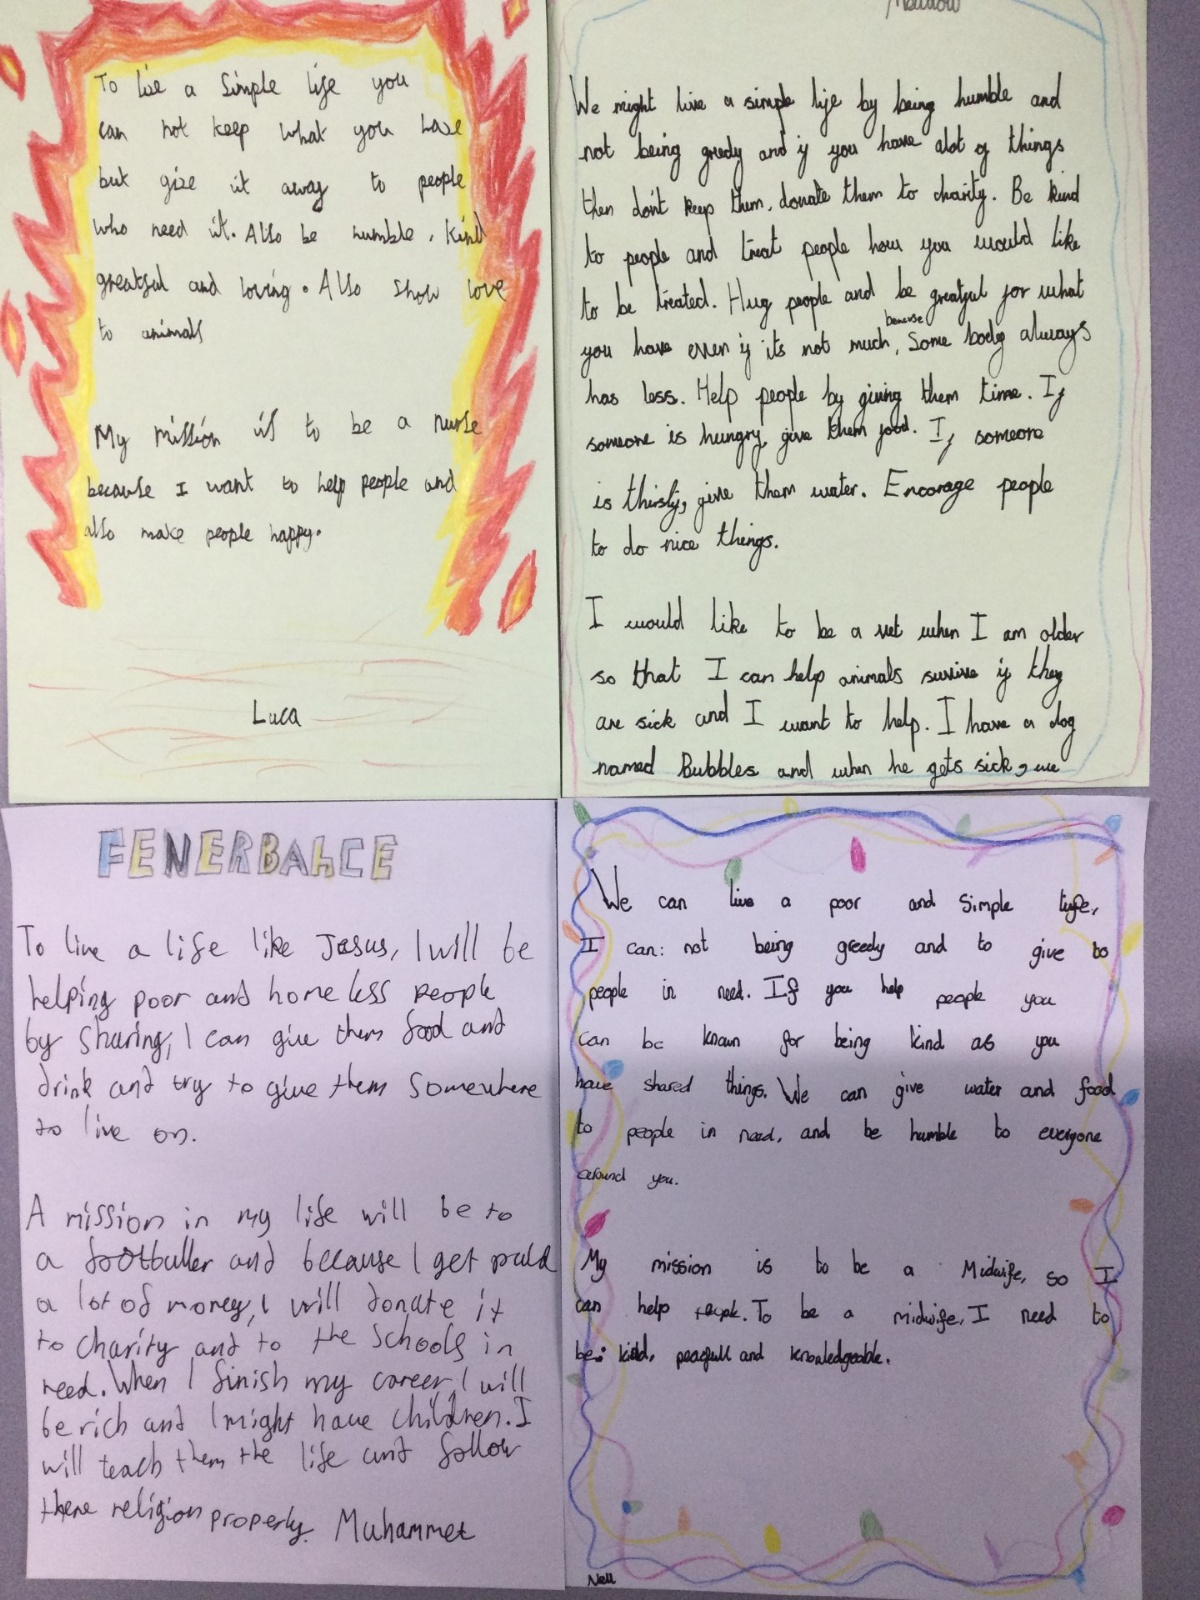 To live a Simple life you
can not keep what you have
but give it away to people
who need it. Also be humble, kind
greatful and loving. Also show love
to animals
My mission is to be a nurse
because I want to help people and
also make people happy.
Luca
We might live a simple life by being humble and
not being gredy and if you have alot of things
then don't keep them, donate them to charity. Be kind
to people and treat people how you would like
to be treated. Hug people and be greatful for what
because
you have even if its not much, Some body always
has less. Help people by giving them time. If
someone is hungry, give them food. If someone
is thirsty, give them water. Encorage people
to do nice things.
I would like to be a vet when I am older
so that I can help animals survive if they
are sick and I want to help. I have a dog
named Bubbles and when he gets sick, we
FENERBAhCE
To live a life like Jesus, I will be
helping poor and homeless people
by sharing, I can give them food and
drink and try to give them somewhere
to live on.
A mission in my life will be to
a footballer and because I get paid
a lot of money, I will donate it
to charity and to the schools in
need. When I finish my career, I will
be rich and I might have children. I
will teach them the life and follow
there religion properly. Muhammet
We can live a poor and simple life,
I can: not being greedy and to give to
people in need. If you help people you
can be known for being kind as you
have shared things. We can give water and food
to people in need, and be humble to everyone
around you.
My mission is to be a Midwife, so I
can help people. To be a midwife, I need to
be: kind, peacfull and knowledgeable.
Nell